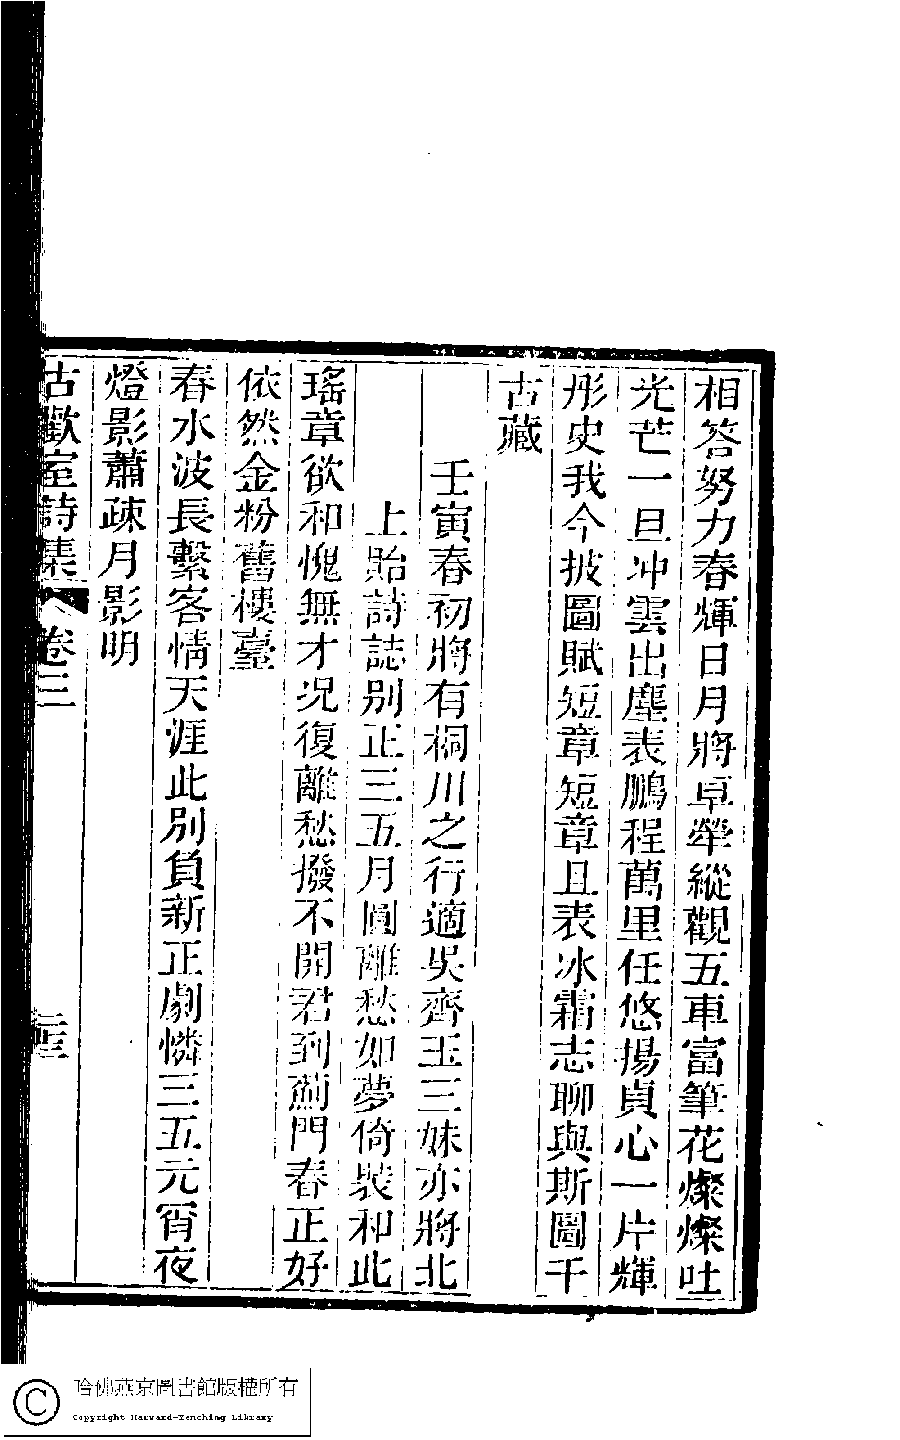 相答努力春輝日月將卓犖縱觀五車富筆花燦燦吐
光芒一旦冲雲出塵表鵬程萬里任悠揚貞心一片輝
彤史我今披圖賦短章短章且表冰霜志聊與斯圖千
古藏
壬寅春初將有桐川之行適吳齊玉三妹亦將北
上貽詩誌别正三五月圓離愁如夢倚裝和此
瑤章欲和愧無才况復離愁撥不開君到薊門春正好
依然金粉舊樓臺
春水波長繫客情天涯此別負新正劇憐三五元宵夜
燈影蕭疎月影明
古歡室詩集 卷三
哈佛燕京圖書館版權所有
Copyright Harvard-Yenching Library